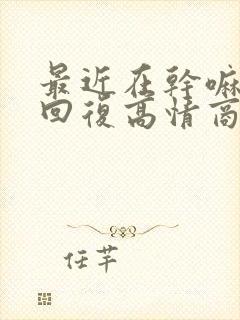 最近在幹嘛
回復高情商
任芊